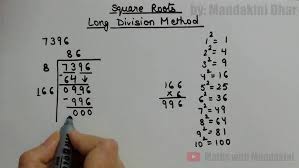 by: Mandakini Dhar
Square Roots
Long Division Method
7396
86
8 7396
-64↓
166 0996
-996
000
166
×6
996
1² = 1
2² = 4
3² = 9
4² = 16
5² = 25
6² = 36
7² = 49
8² = 64
9² = 81
10² = 100
Maths with Mandakini